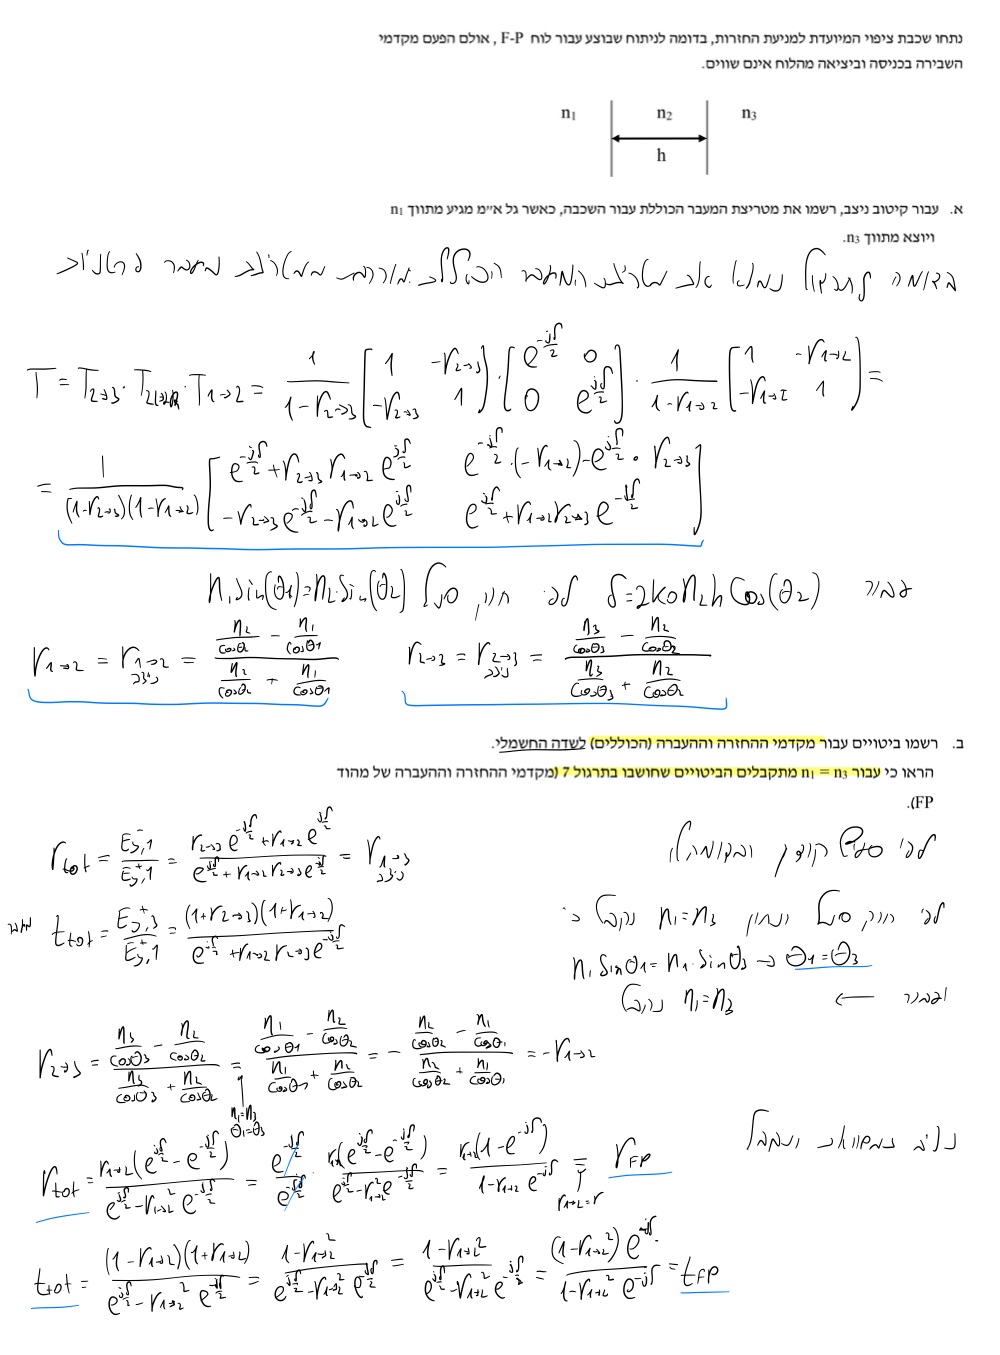 נתחו שכבת ציפוי המיועדת למניעת החזרות, בדומה לניתוח שבוצע עבור לוח F-P , אולם הפעם מקדמי
השבירה בכניסה וביציאה מהלוח אינם שווים.
n₁ n₂ n₃
h
א. עבור קיטוב ניצב, רשמו את מטריצת המעבר הכוללת עבור השכבה, כאשר גל א״מ מגיע מתווך n₁
ויוצא מתווך n₃.
בדומה לתרגול נמצא את מטריצת המעבר הכוללת
T = T₂→₃ · T · T₁→₂ = 1/(1-r₂→₃) [1 -r₂→₃ ; -r₂→₃ 1] · [e^(-jδ/2) 0 ; 0 e^(jδ/2)] · 1/(1-r₁→₂) [1 -r₁→₂ ; -r₁→₂ 1] =
= 1/((1-r₂→₃)(1-r₁→₂)) [e^(-jδ/2) + r₂→₃ r₁→₂ e^(jδ/2) e^(-jδ/2)·(-r₁→₂) - e^(jδ/2)·r₂→₃ ; -r₂→₃ e^(-jδ/2) - r₁→₂ e^(jδ/2) e^(jδ/2) + r₁→₂ r₂→₃ e^(-jδ/2)]
עבור δ = 2k₀n₂h Cos(θ₂) לפי חוק סנל n₁Sin(θ₁) = n₂·Sin(θ₂)
r₁→₂ = r₁→₂ ניצב = (n₂/cosθ₂ - n₁/cosθ₁)/(n₂/cosθ₂ + n₁/cosθ₁) r₂→₃ = r₂→₃ ניצב = (n₃/cosθ₃ - n₂/cosθ₂)/(n₃/cosθ₃ + n₂/cosθ₂)
ב. רשמו ביטויים עבור מקדמי ההחזרה וההעברה (הכוללים) לשדה החשמלי.
הראו כי עבור n₁ = n₃ מתקבלים הביטויים שחושבו בתרגול 7 (מקדמי ההחזרה וההעברה של מהוד
FP).
לפי סעיף קודם ובדומה לו
r_tot = E⁻₃,₁/E⁺₃,₁ = (r₂→₃ e^(-jδ/2) + r₁→₂ e^(jδ/2))/(e^(jδ/2) + r₁→₂ r₂→₃ e^(-jδ/2)) = r₁→₃ ניצב
t_tot = E⁺₃,₃/E⁺₃,₁ = (1+r₂→₃)(1+r₁→₂)/(e^(jδ/2) + r₁→₂ r₂→₃ e^(-jδ/2))
לפי חוק סנל ונתון n₁=n₃ נקבל כי
n₁ Sinθ₁ = n₁·Sinθ₃ → θ₁=θ₃
ועבור n₁=n₃ נקבל ←
r₂→₃ = (n₃/cosθ₃ - n₂/cosθ₂)/(n₃/cosθ₃ + n₂/cosθ₂) = (n₁/cosθ₁ - n₂/cosθ₂)/(n₁/cosθ₁ + n₂/cosθ₂) = -(n₂/cosθ₂ - n₁/cosθ₁)/(n₂/cosθ₂ + n₁/cosθ₁) = -r₁→₂
n₁=n₃
θ₁=θ₃
נציב במשוואות ונקבל
r_tot = r₁→₂(e^(jδ/2) - e^(-jδ/2))/(e^(jδ/2) - r₁→₂² e^(-jδ/2)) = e^(-jδ/2)/e^(-jδ/2) · r₁→₂(e^(jδ/2) - e^(-jδ/2))/(e^(jδ/2) - r₁→₂² e^(-jδ/2)) = r₁→₂(1 - e^(-jδ))/(1 - r₁→₂ e^(-jδ)) = r_FP
r₁→₂=r
t_tot = (1-r₁→₂)(1+r₁→₂)/(e^(jδ/2) - r₁→₂² e^(-jδ/2)) = (1-r₁→₂²)/(e^(jδ/2) - r₁→₂² e^(-jδ/2)) = (1-r₁→₂²)/(e^(jδ/2) - r₁→₂² e^(-jδ/2)) = (1-r₁→₂²) e^(-jδ/2)/(1-r₁→₂² e^(-jδ)) = t_FP